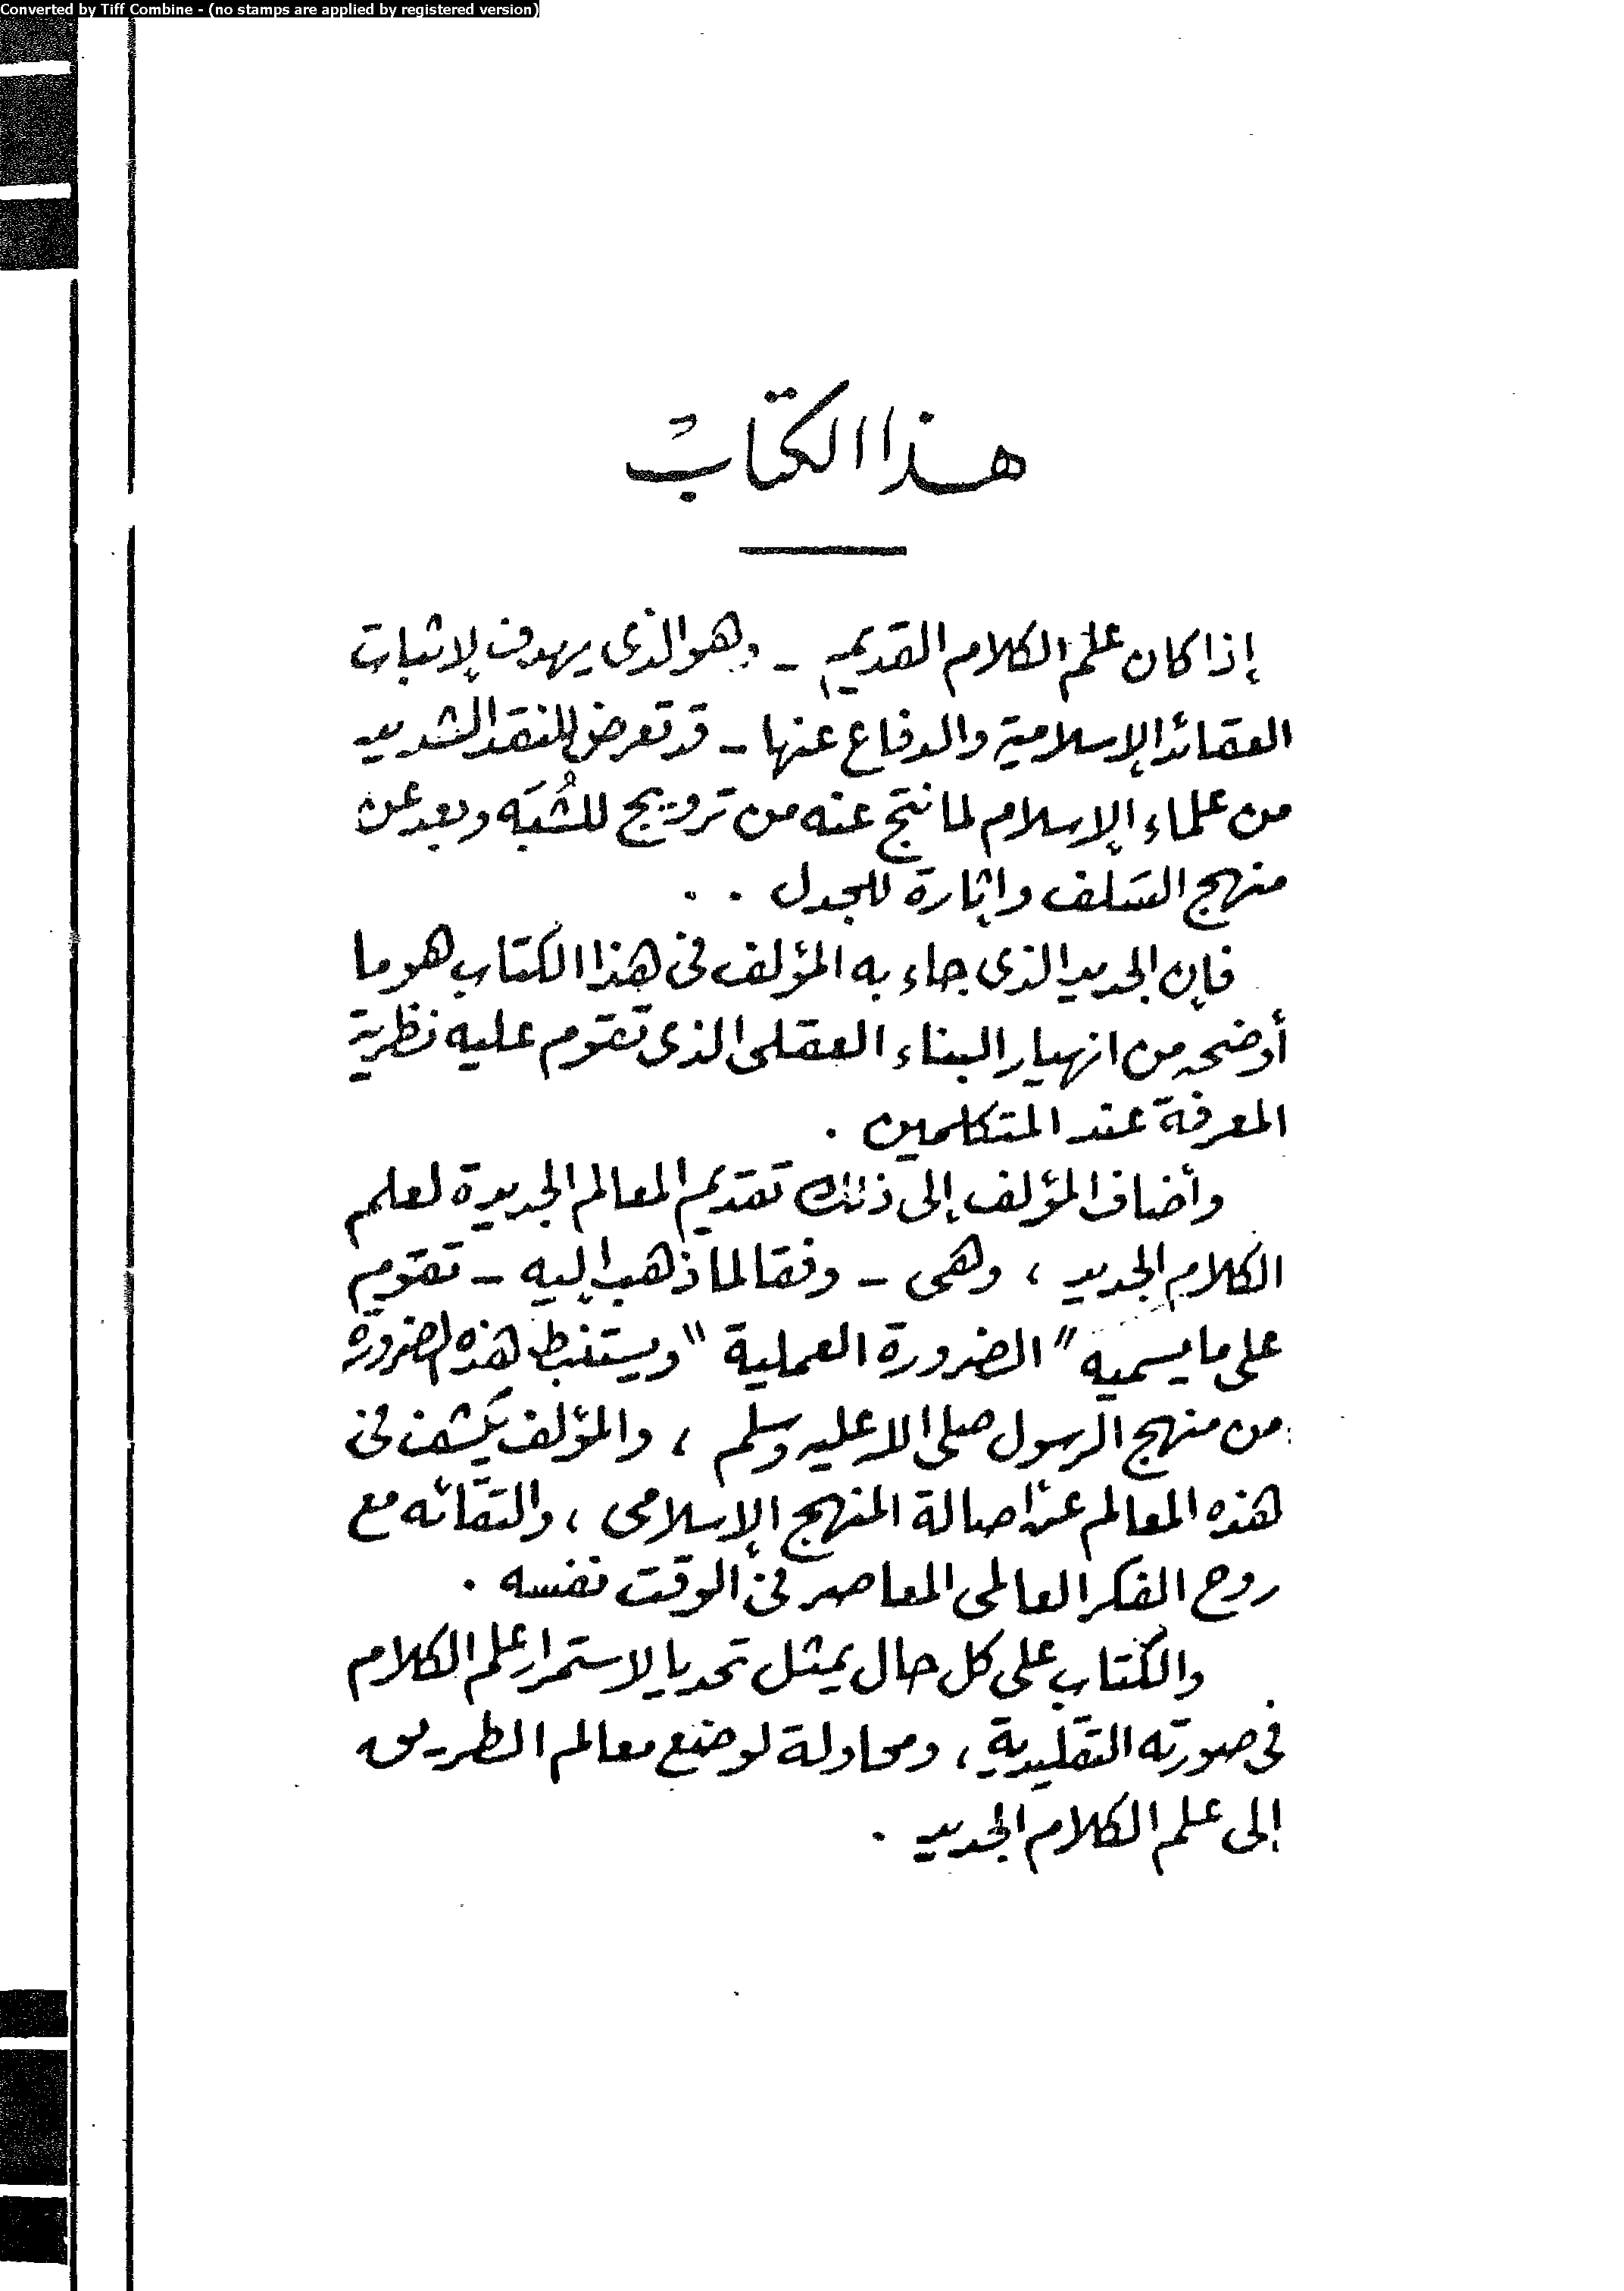 Converted by Tiff Combine - (no stamps are applied by registered version)
هذا الكتابُ
إذا كان علم الكلام القديم - وهو الذى يهدف لإثبات
العقائد الإسلامية والدفاع عنها - قد تعرض للنقد الشديد
من علماء الإسلام لما نتج عنه من ترويج للشُبَه وبعد عن
منهج السَلف وإثارة للجدل . .
فإن الجديد الذى جاء به المؤلف فى هذا الكتاب هو ما
أوضحه من انهيار البناء العقلى الذى تقوم عليه نظرية
المعرفة عند المتكلمين .
وأضاف المؤلف إلى ذلك تقديم المعالم الجديدة لعلم
الكلام الجديد ، وهى - وفقا لما ذهب إليه - تقوم
على ما يسميه " الضرورة العملية " ويستنبط هذه الضرورة
من منهج الرسول صلى الله عليه وسلم ، والمؤلف يكشف فى
هذه المعالم عن أصالة المنهج الإسلامى ، والتقائه مع
روح الفكر العالمى المعاصر فى الوقت نفسه .
والكتاب على كل حال يمثل تحديا لاستمرار علم الكلام
فى صورته التقليدية ، ومحاولة لوضع معالم الطريق
إلى علم الكلام الجديد .